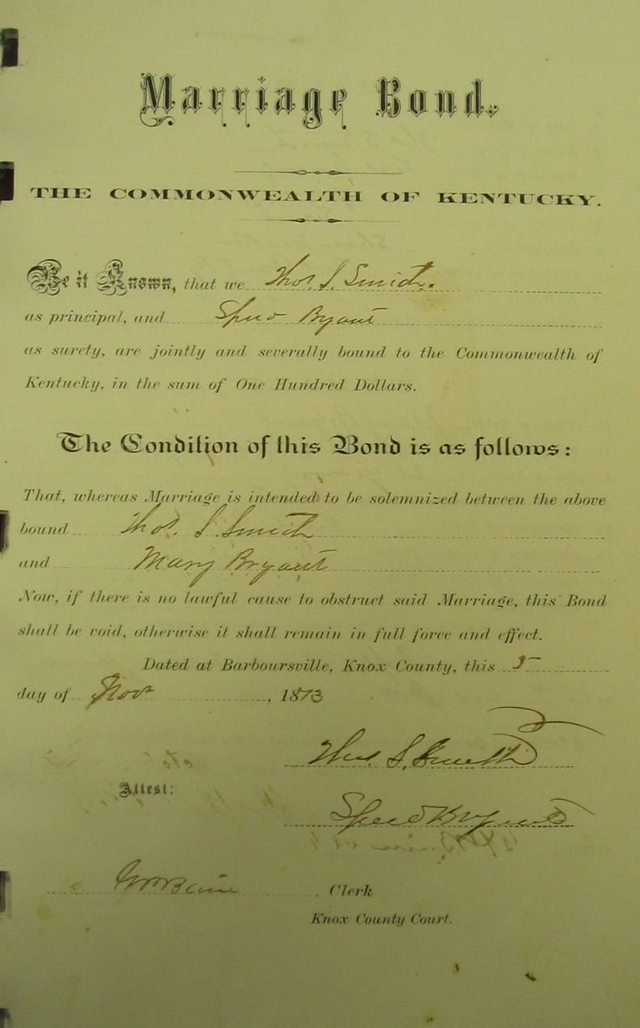 Marriage Bond.
THE COMMONWEALTH OF KENTUCKY.
Be it Known, that we Thos S. Smith.
as principal, and Speed Bryant
as surety, are jointly and severally bound to the Commonwealth of
Kentucky, in the sum of One Hundred Dollars.
The Condition of this Bond is as follows:
That, whereas Marriage is intended to be solemnized between the above
bound Thos. S. Smith
and Mary Bryant
Now, if there is no lawful cause to obstruct said Marriage, this Bond
shall be void, otherwise it shall remain in full force and effect.
Dated at Barboursville, Knox County, this 5
day of Nov, 1873
Thos S. Smith
Attest:
Speed Bryant
Clerk
Knox County Court.